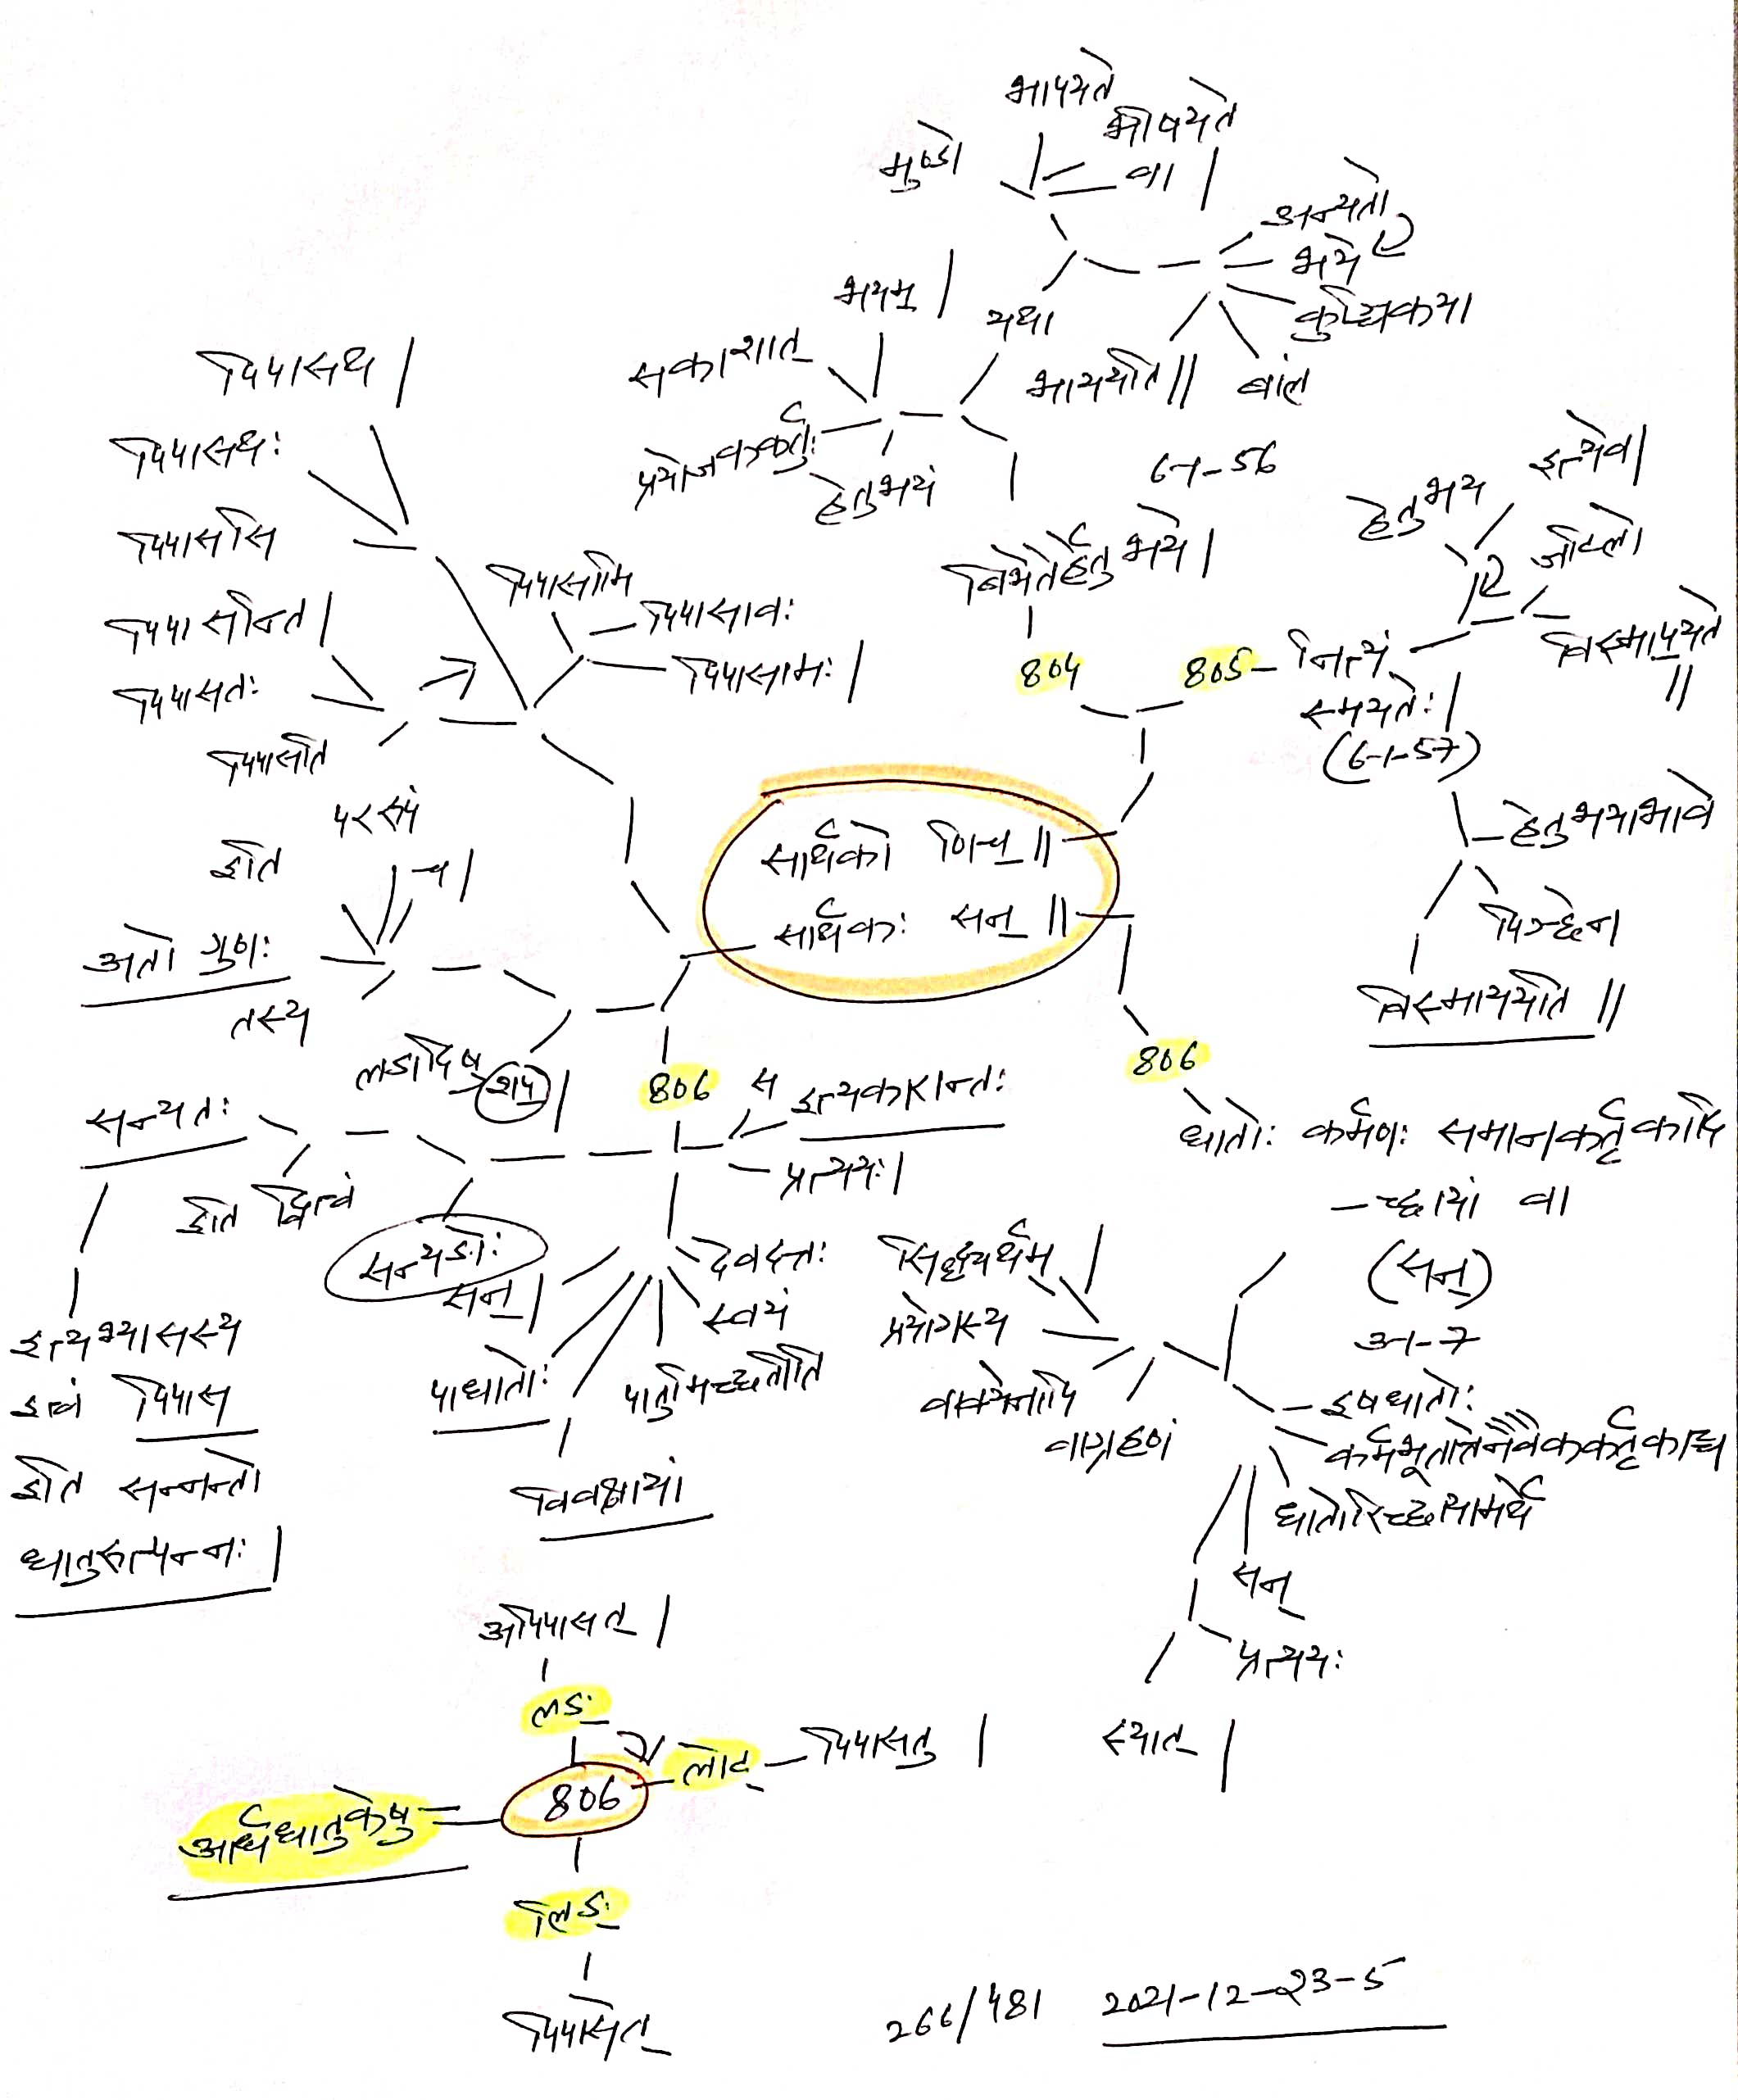 भापयते
भीषयते
मुण्डो
वा |
अन्यतो
भये
कुञ्चिकया
बालं
भाययति ||
यथा
भयम् |
सकाशात्
प्रयोजककर्तुः
हेतुभयं
6-1-56
बिभेतेर्हेतुभये |
804
805
नित्यं
स्मयतेः |
(6-1-57)
हेतुभय
इत्येव |
जटिलो
विस्मापयते
||
हेतुभयाभावे
पिञ्छेन
विस्माययति ||
पिपासथ |
पिपासथः
पिपाससि
पिपासन्ति |
पिपासतः
पिपासति
पिपासामि
पिपासावः
पिपासामः |
सार्थको णिच् ||
सार्थकः सन् ||
पररूपं
इति
च |
अतो गुणः
तस्य
लडादिषु
शप् |
806
स
इत्यकारान्तः
प्रत्ययः |
सन्यतः
इति द्वित्वं
सन्यङोः
सन् |
देवदत्तः
स्वयं
पातुमिच्छतीति
पाधातोः
विवक्षायां
इत्यभ्यासस्य
इत्वं पिपास
इति सन्नन्तो
धातुरुत्पन्नः |
806
धातोः कर्मणः समानकर्तृकादि
-च्छायां वा
(सन्)
3-1-7
सिद्ध्यर्थम् |
प्रयोगस्य
वाक्येनापि
वाग्रहणं
इषधातोः
कर्मभूतात्तेनैवैककर्तृकाच्च
धातोरिच्छायामर्थे
सन्
प्रत्ययः
स्यात् |
अपिपासत् |
लङ्
लोट् पिपासतु |
806
आर्धधातुकेषु
लिङ्
पिपासेत्
266/481 2021-12-23-5